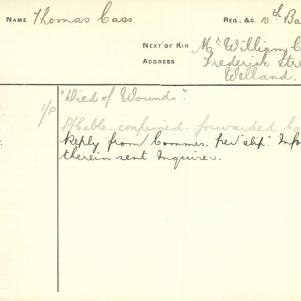 NAME Thomas Cass
REG. &C. 10th Ba
NEXT OF KIN Mr William C
ADDRESS Frederick Stre
Welland.
1/P "Died of Wounds".
P/Cable confirmed forwarded Co
Reply from Commer. per slip. Info
therein sent Inquirer.